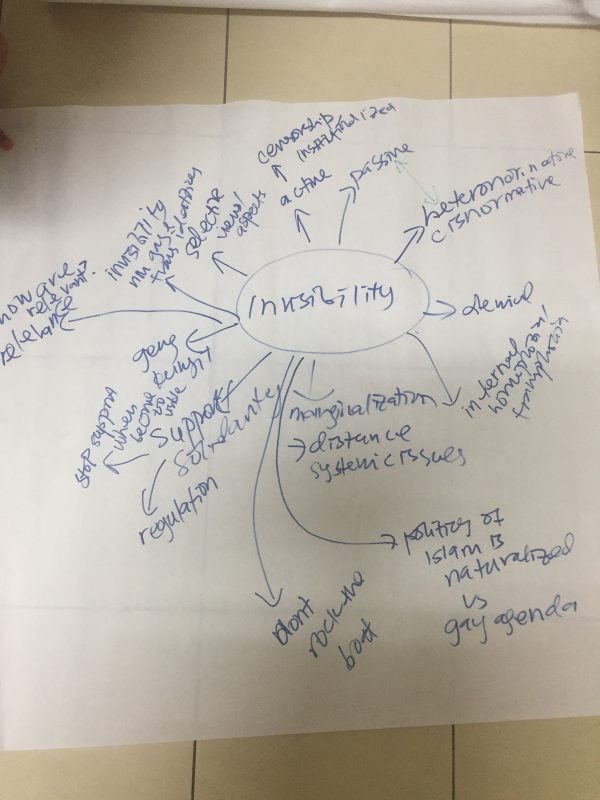 Invisibility
active
censorship
institutionalized
passive
heteronormative
cisnormative
denial
internal
homophobia/
transphobia
marginalization
→ distance
systemic issues
politics of
islam is
naturalized
vs
gay agenda
dont
rock the
boat
support
solidarity
regulation
stop support
when
become
too
visible
how are
relevant?
relevance
invisibility
trans identities
selective
views/
aspects